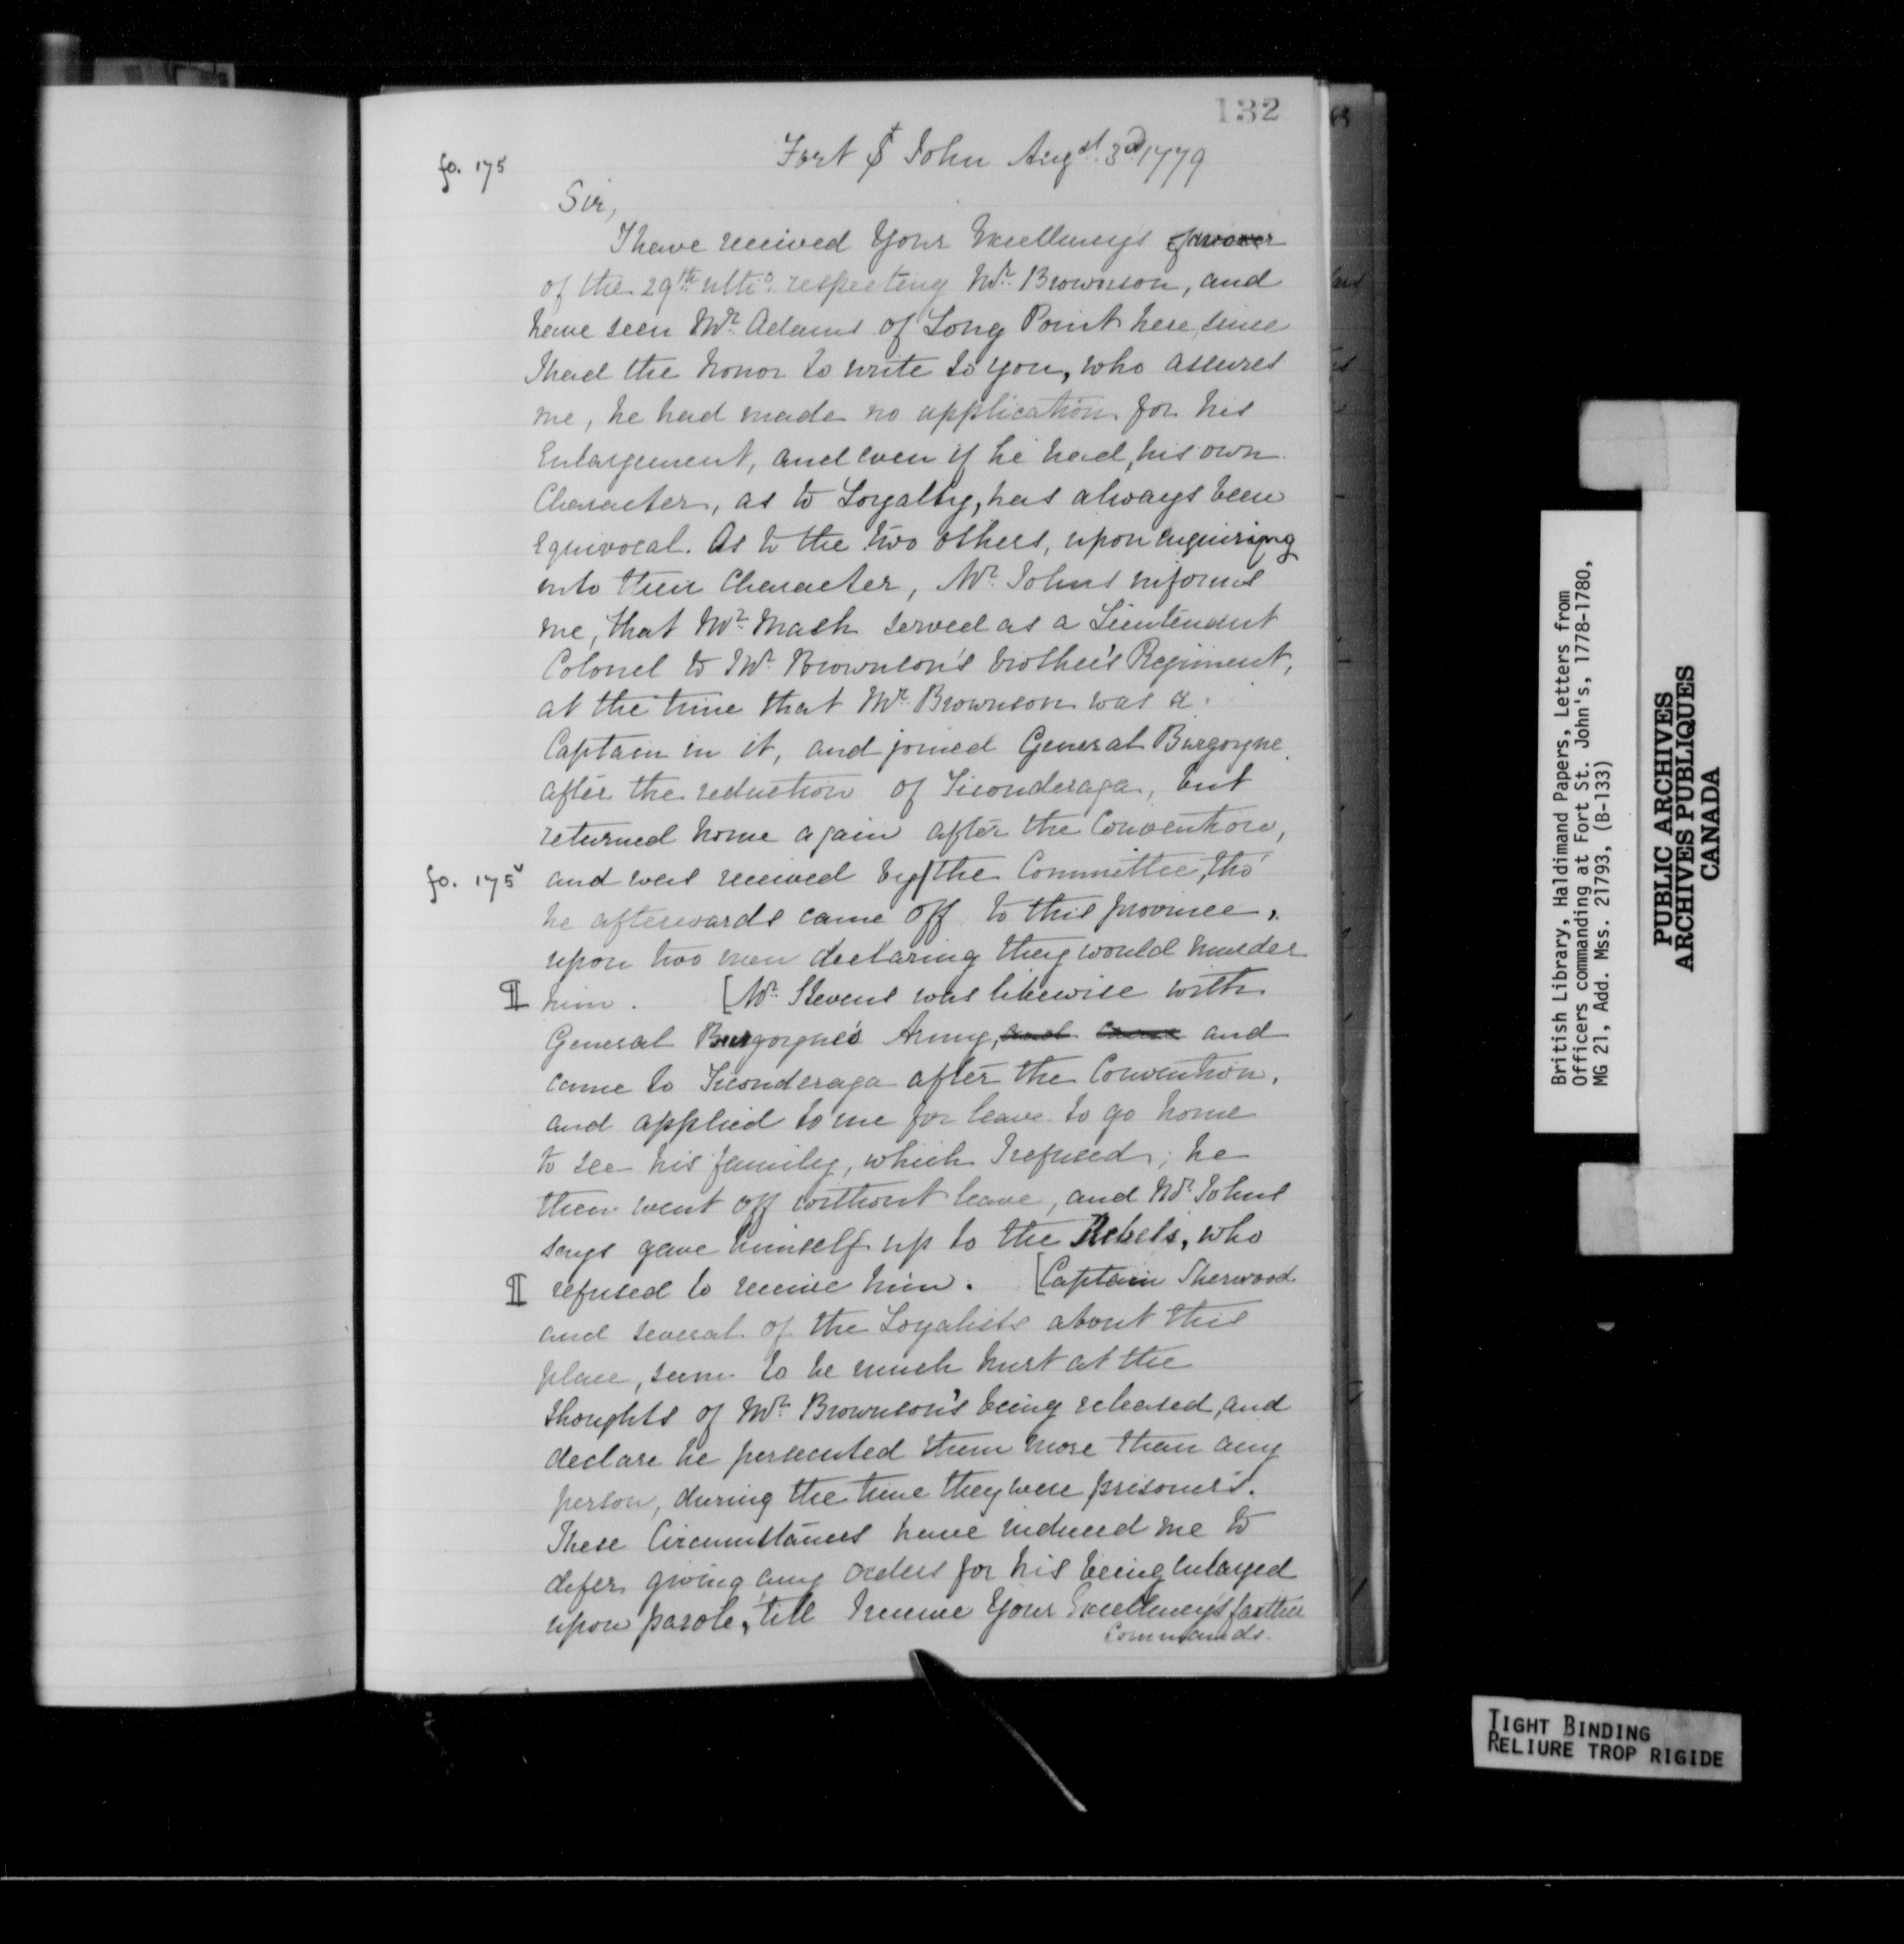 132
Fort St John Augst. 3d 1779
fo. 175
Sir,
I have received Your Excellency's
of the 29th ulto. respecting Mr. Brownson, and
have seen Mr. Adams of Long Point here, since
I had the honor to write to you, who assures
me, he had made no application for his
Enlargement, and even if he had, his own
Character, as to Loyalty, has always been
equivocal. As to the two others, upon enquiring
into their Character, Mr. Johns informs
me, that Mr. Mach served as a Lieutenant
Colonel to Mr. Brownson's brother's Regiment,
at the time that Mr. Brownson was a
Captain in it, and joined General Burgoyne
after the reduction of Ticonderaga, but
returned home again after the Convention,
fo. 175v and was received by/the Committee, tho'
he afterwards came off to this province,
upon two men declaring they would murder
¶ him. [Mr. Stevens was likewise with
General Burgoyne's Army, and came and
came to Ticonderaga after the Convention,
and applied to me for leave to go home
to see his family, which I refused; he
then went off without leave, and Mr. Johns
says gave himself up to the Rebels, who
¶ refused to receive him. [Captain Sherwood
and several of the Loyalists about this
place, seem to be much hurt at the
thoughts of Mr. Brownson's being released, and
declare he persecuted them more than any
person, during the time they were prisoners.
These Circumstances have induced me to
defer giving any orders for his being enlarged
upon parole, till I receive Your Excellency's farther
Commands.
British Library, Haldimand Papers, Letters from
Officers commanding at Fort St. John's, 1778-1780,
MG 21, Add. Mss. 21793, (B-133)
PUBLIC ARCHIVES
ARCHIVES PUBLIQUES
CANADA
TIGHT BINDING
RELIURE TROP RIGIDE